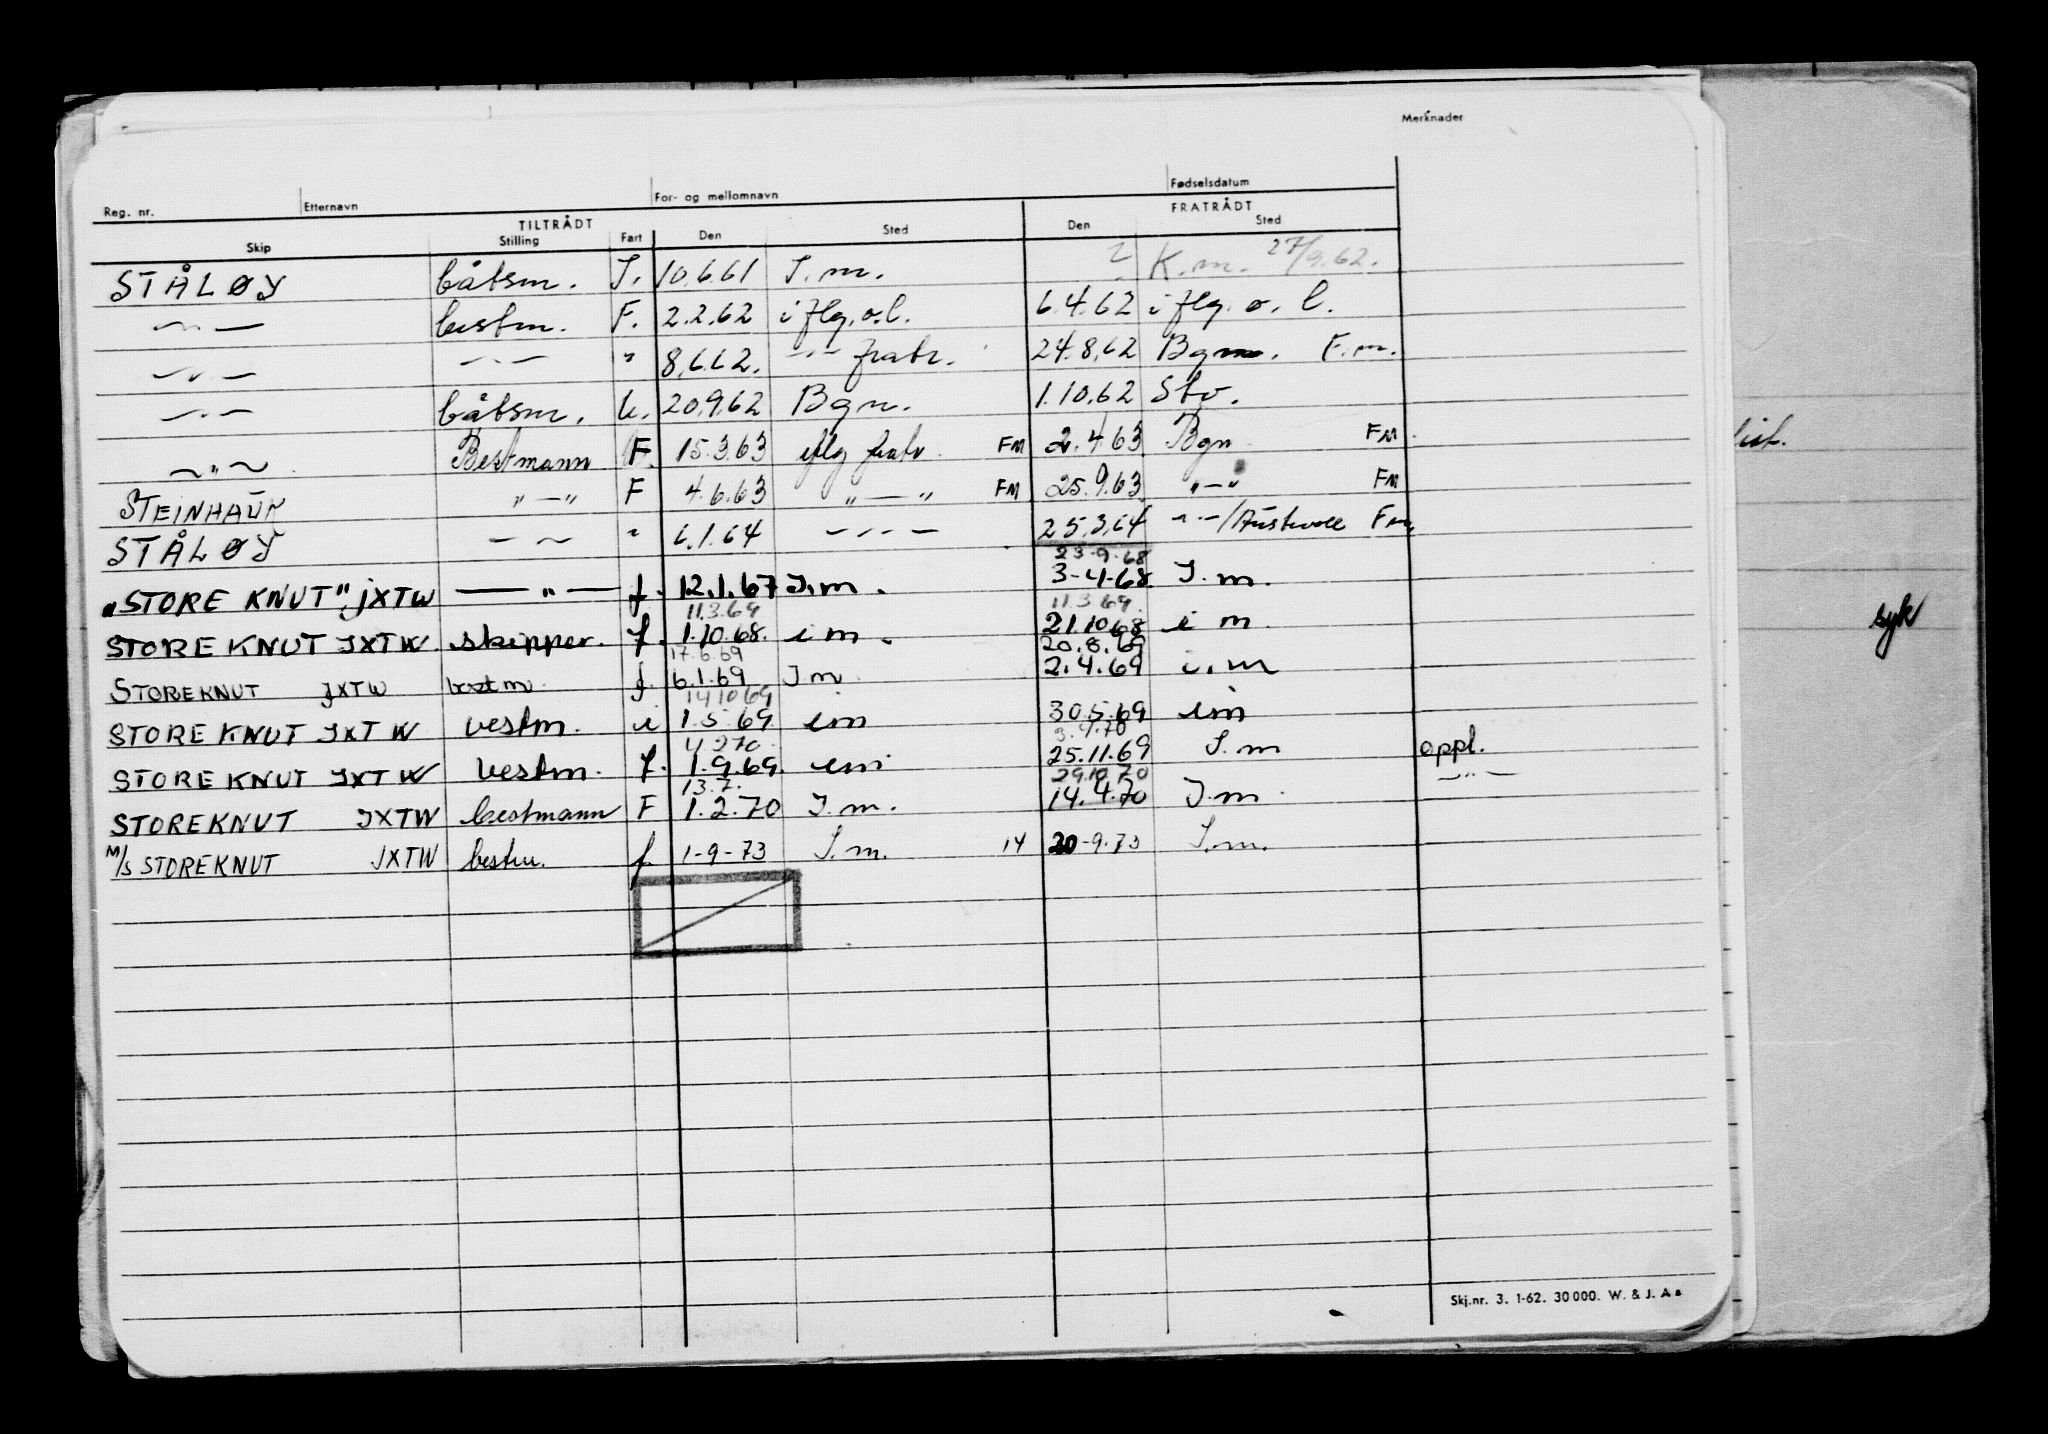 Merknader
Reg. nr. Etternavn For- og mellomnavn Fødselsdatum
TILTRÅDT FRATRÅDT
Skip Stilling Fart Den Sted Den Sted
STÅLØY båtsm. I. 10.6.61 I.m. ? K.m. 27/9.62.
—„— bestm. F. 2.2.62 iflg.o.l. 6.4.62 iflg.o.l.
—„— —„— " 8.6.62. —„— fratr. 24.8.62 Bgn. F.m.
—„— båtsm. U. 20.9.62 Bgn. 1.10.62 Stv.
—„— Bestmann F. 15.3.63 iflg fratr. FM 2.4.63 Bgn FM.
STEINHAUK "—" F 4.6.63 "—" FM 25.9.63 "—" FM
STÅLØY —„— " 6.1.64 —„— 25.3.64 —„—/Austevoll Fm.
23.9.68
"STORE KNUT", JXTW —„— f. 12.1.67 I.m. 3-4-68 I.m.
11.3.69 11.3.69.
STORE KNUT JXTW. skipper. f. 1.10.68. i m. 21.10.68 i m.
17.6.69 20.8.69
STOREKNUT JXTW bestm. f. 6.1.69 I m 2.4.69 i.m
14 10 69
STORE KNUT JXTW vestm. i 1.5.69 im 30.5.69 im
4.2.70. 3.4.70
STORE KNUT JXTW vestm. f. 1.9.69. im 25.11.69 I.m oppl.
13.7. 29.10.70 —"—
STOREKNUT JXTW bestmann F 1.2.70 I.m. 14.4.70 I.m.
M/S STOREKNUT JXTW bestm. f 1-9-73 I.m. 14 20-9.73 I.m.
list.
syk
Skj.nr. 3. 1-62. 30 000. W. & J. A s